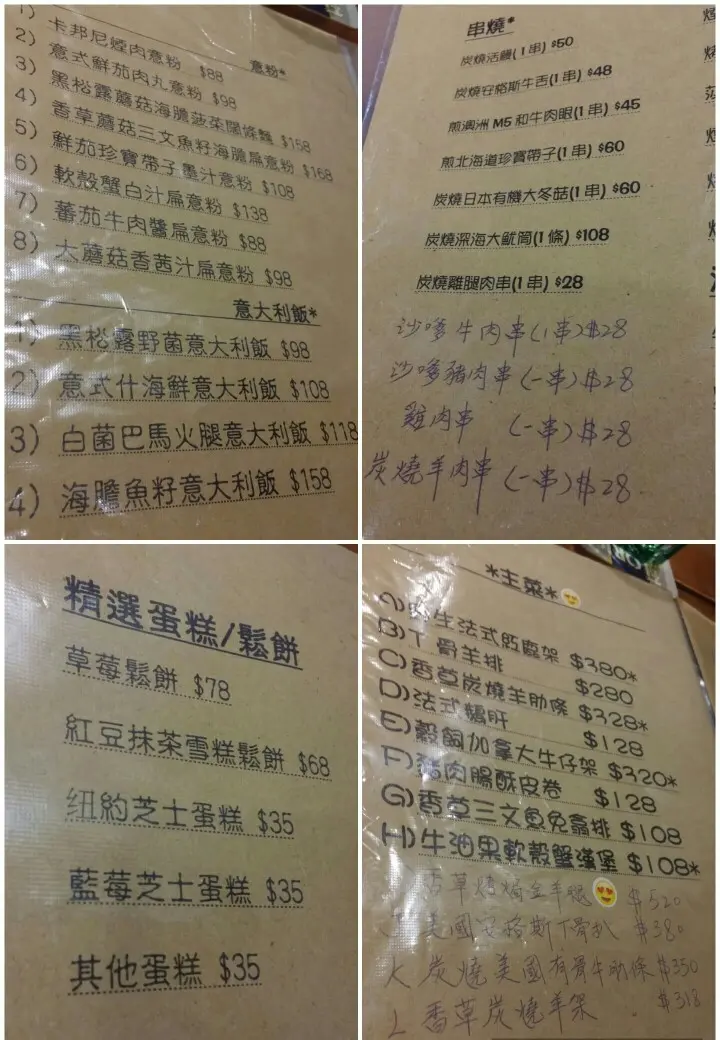 1)
意粉*
2) 卡邦尼煙肉意粉 $88
3) 意式鮮茄肉丸意粉 $98
4) 黑松露蘑菇海膽菠菜闊條麵 $158
5) 香草蘑菇三文魚籽海膽扁意粉 $168
6) 鮮茄珍寶帶子墨汁意粉 $108
7) 軟殼蟹白汁扁意粉 $138
8) 蕃茄牛肉醬扁意粉 $88
大蘑菇香茜汁扁意粉 $98
意大利飯*
1) 黑松露野菌意大利飯 $98
2) 意式什海鮮意大利飯 $108
3) 白菌巴馬火腿意大利飯 $118
4) 海膽魚籽意大利飯 $158
串燒*
炭燒活鰻(1串) $50
炭燒安格斯牛舌(1串) $48
煎澳洲M5和牛肉眼(1串) $45
煎北海道珍寶帶子(1串) $60
炭燒日本有機大冬菇(1串) $60
炭燒深海大魷筒(1條) $108
炭燒雞腿肉串(1串) $28
沙嗲牛肉串(1串)$28
沙嗲豬肉串(一串)$28
雞肉串 (一串)$28
炭燒羊肉串(一串)$28
精選蛋糕/鬆餅
草莓鬆餅 $78
紅豆抹茶雪糕鬆餅 $68
纽約芝士蛋糕 $35
藍莓芝士蛋糕 $35
其他蛋糕 $35
*主菜*
A) 生法式焗鹿架 $380*
B) T骨羊排 $280
C) 香草炭燒羊肋條 $328*
D) 法式鵝肝 $128
E) 穀飼加拿大牛仔架 $320*
F) 豬肉腸酥皮卷 $128
G) 香草三文魚免翕排 $108
H) 牛油果軟殼蟹漢堡 $108*
香草烤焗全羊腿 $520
J 美國安格斯T骨扒 $380
K 炭燒美國有骨牛肋條 $350
L 香草炭燒羊架 $318